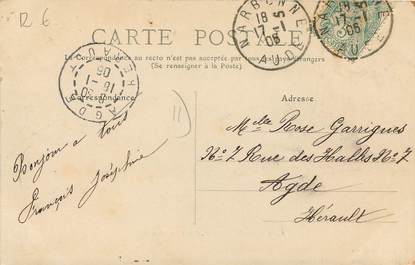 R 6
CARTE POSTALE
La Correspondance au recto n'est pas acceptée par tous les pays étrangers
(Se renseigner à la Poste)
NARBONNE
18
17-5
06
AUDE
NARBONNE
18
17-5
06
AUDE
AGDE
HERAULT
06
Correspondance
Adresse
Bonjour a tous
François Joséphine
Melle Rose Garrigues
No 7 Rue des Halles No 7
Agde
Hérault